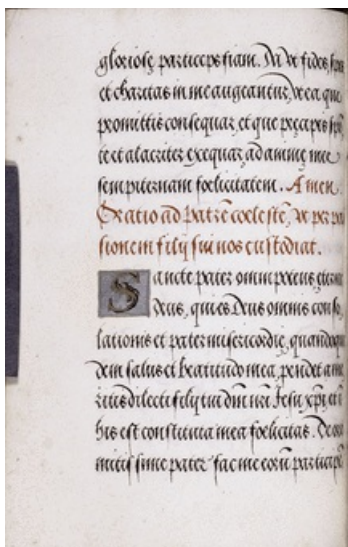 gloriosę particeps fiam. Da vt fides, spes
et charitas in me augeantur, vt ea que
promittis consequar, et que pręcipis
te et alacriter exequar, ad animę meę
sempiternam foelicitatem. Amen
Oratio ad patrē coelestē, vt per pas
sionem filij sui nos custodiat.
Sancte pater omnipotens, ęterne
Deus, qui es Deus omnis conso
lationis et pater misericordię, quandoqui
dem salus et beatitudo mea, pendet a me
ritis dilecti filij tui dm̄ nr̄i Jesu xp̄i,
his est constituta mea foelicitas.
mitissime pater fac me eorū particip